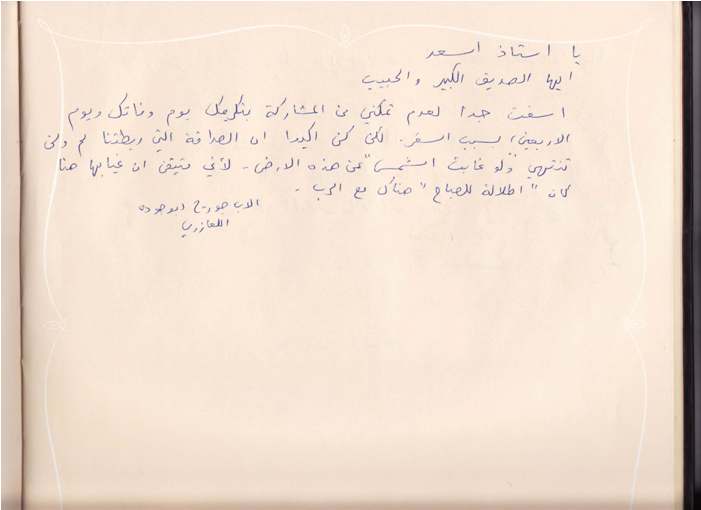 يا استاذ اسعد
ايها الصديق الكبير والحبيب
اسفت جدا لعدم تمكني من المشاركة بتكريمك يوم وفاتك ويوم
الاربعين، بسبب السفر. لكن كن اكيدا ان الصداقة التي ربطتنا لم ولن
تنتهي "ولو غابت الشمس" عن هذه الارض - لأني متيقن ان غيابها هنا
كان "اطلالة للصباح" هناك مع الرب -
الاب جورج ابو جوده
اللعازري